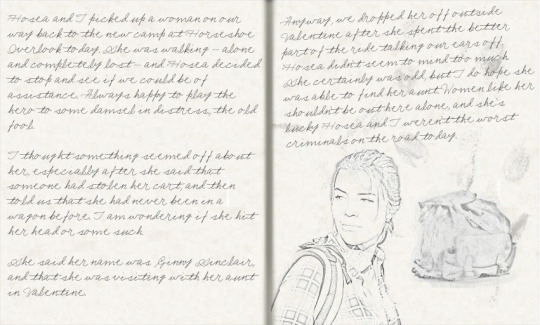 Hosea and I picked up a woman on our
way back to the new camp at Horseshoe
Overlook today. She was walking - alone
and completely lost - and Hosea decided
to stop and see if we could be of
assistance. Always happy to play the
hero to some damsel in distress, the old
fool.
I thought something seemed off about
her, especially after she said that
someone had stolen her cart, and then
told us that she had never been in a
wagon before. I am wondering if she hit
her head or some such.
She said her name was Ginny Sinclair,
and that she was visiting with her aunt
in Valentine.
Anyway, we dropped her off outside
Valentine after she spent the better
part of the ride talking our ears off.
Hosea didn't seem to mind too much.
She certainly was odd, but I do hope she
was able to find her aunt. Women like her
shouldn't be out here alone, and she's
lucky Hosea and I weren't the worst
criminals on the road today.